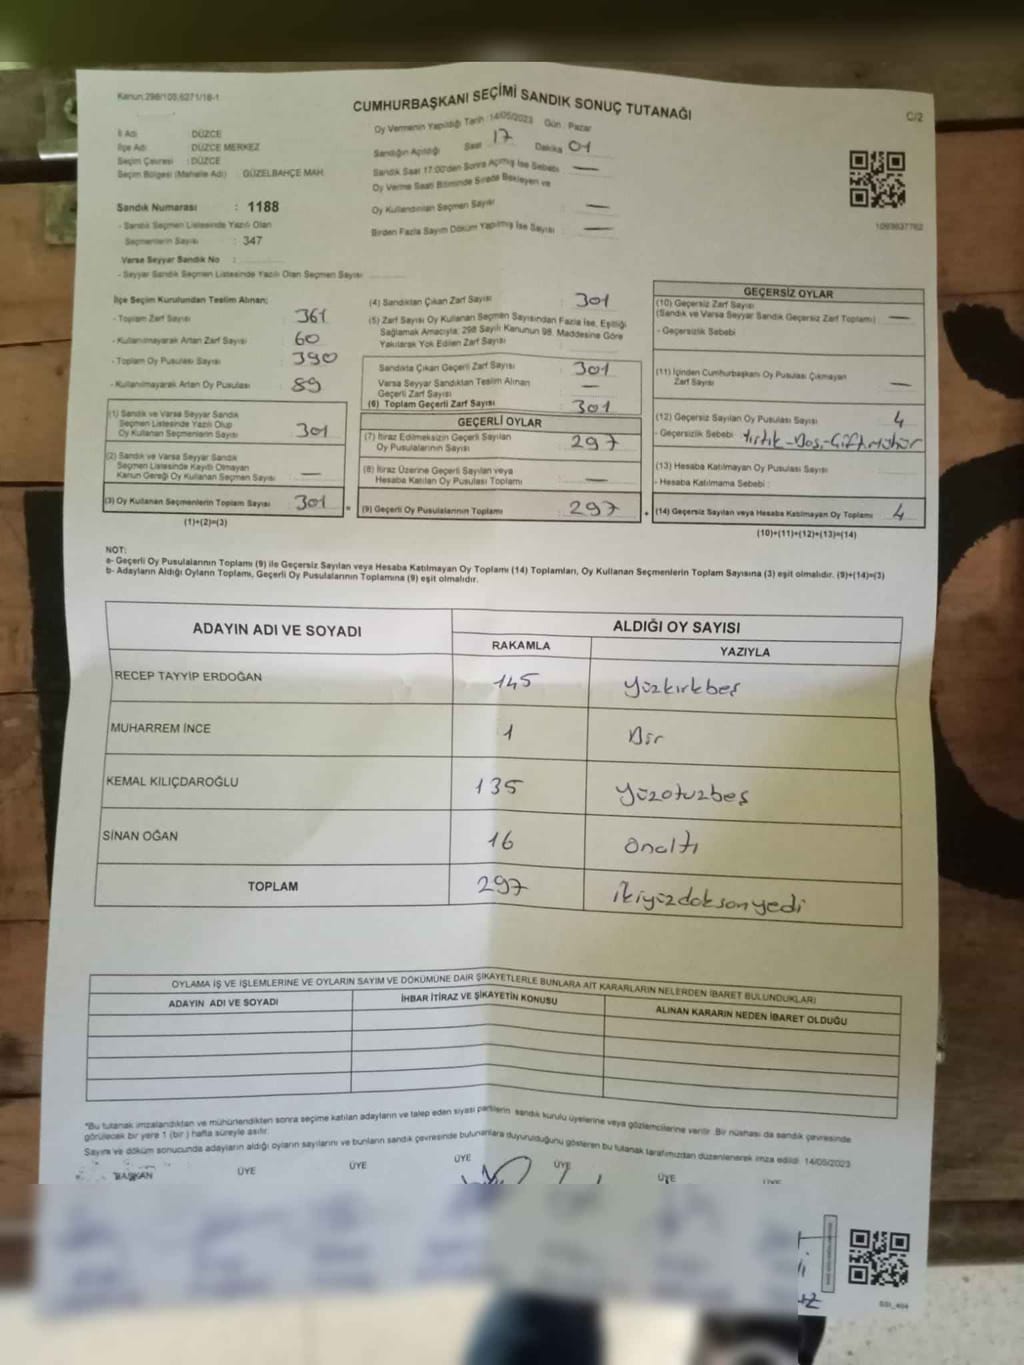 Kanun:298/105;6271/18-1
CUMHURBAŞKANI SEÇİMİ SANDIK SONUÇ TUTANAĞI
C/2
İl Adı DÜZCE
İlçe Adı DÜZCE MERKEZ
Seçim Çevresi : DÜZCE
Seçim Bölgesi (Mahalle Adı) GÜZELBAHÇE MAH.
Sandık Numarası : 1188
- Sandık Seçmen Listesinde Yazılı Olan
Seçmenlerin Sayısı : 347
Varsa Seyyar Sandık No :
- Seyyar Sandık Seçmen Listesinde Yazılı Olan Seçmen Sayısı
Oy Vermenin Yapıldığı Tarih :14/05/2023 Gün : Pazar
Sandığın Açıldığı Saat 17 Dakika 01
Sandık Saat 17:00'den Sonra Açılmış İse Sebebi —
Oy Verme Saati Bitiminde Sırada Bekleyen ve
Oy Kullandırılan Seçmen Sayısı —
Birden Fazla Sayım Döküm Yapılmış İse Sayısı : —
1093637762
İlçe Seçim Kurulundan Teslim Alınan;
- Toplam Zarf Sayısı 361
- Kullanılmayarak Artan Zarf Sayısı 60
- Toplam Oy Pusulası Sayısı 390
- Kullanılmayarak Artan Oy Pusulası 89
(1) Sandık ve Varsa Seyyar Sandık
Seçmen Listesinde Yazılı Olup
Oy Kullanan Seçmenlerin Sayısı 301
(2) Sandık ve Varsa Seyyar Sandık
Seçmen Listesinde Kayıtlı Olmayan
Kanun Gereği Oy Kullanan Seçmen Sayısı —
(3) Oy Kullanan Seçmenlerin Toplam Sayısı 301
(1)+(2)=(3)
(4) Sandıktan Çıkan Zarf Sayısı : 301
(5) Zarf Sayısı Oy Kullanan Seçmen Sayısından Fazla İse, Eşitliği
Sağlamak Amacıyla; 298 Sayılı Kanunun 98. Maddesine Göre
Yakılarak Yok Edilen Zarf Sayısı :
Sandıkta Çıkan Geçerli Zarf Sayısı 301
Varsa Seyyar Sandıktan Teslim Alınan
Geçerli Zarf Sayısı —
(6) Toplam Geçerli Zarf Sayısı 301
GEÇERLİ OYLAR
(7) İtiraz Edilmeksizin Geçerli Sayılan
Oy Pusulasının Sayısı 297
(8) İtiraz Üzerine Geçerli Sayılan veya
Hesaba Katılan Oy Pusulası Toplamı —
(9) Geçerli Oy Pusulalarının Toplamı 297
GEÇERSİZ OYLAR
(10) Geçersiz Zarf Sayısı
(Sandık ve Varsa Seyyar Sandık Geçersiz Zarf Toplamı) —
- Geçersizlik Sebebi
(11) İçinden Cumhurbaşkanı Oy Pusulası Çıkmayan
Zarf Sayısı —
(12) Geçersiz Sayılan Oy Pusulası Sayısı 4
- Geçersizlik Sebebi : Yırtık-Boş-Çift Mühür
(13) Hesaba Katılmayan Oy Pusulası Sayısı
- Hesaba Katılmama Sebebi :
(14) Geçersiz Sayılan veya Hesaba Katılmayan Oy Toplamı 4
(10)+(11)+(12)+(13)=(14)
NOT:
a- Geçerli Oy Pusulalarının Toplamı (9) ile Geçersiz Sayılan veya Hesaba Katılmayan Oy Toplamı (14) Toplamları, Oy Kullanan Seçmenlerin Toplam Sayısına (3) eşit olmalıdır. (9)+(14)=(3)
b- Adayların Aldığı Oyların Toplamı, Geçerli Oy Pusulalarının Toplamına (9) eşit olmalıdır.
ADAYIN ADI VE SOYADI ALDIĞI OY SAYISI
RAKAMLA YAZIYLA
RECEP TAYYİP ERDOĞAN 145 yüzkırkbeş
MUHARREM İNCE 1 Bir
KEMAL KILIÇDAROĞLU 135 yüzotuzbeş
SİNAN OĞAN 16 onaltı
TOPLAM 297 ikiyüzdoksanyedi
OYLAMA İŞ VE İŞLEMLERİNE VE OYLARIN SAYIM VE DÖKÜMÜNE DAİR ŞİKAYETLERLE BUNLARA AİT KARARLARIN NELERDEN İBARET BULUNDUKLARI
ADAYIN ADI VE SOYADI İHBAR İTİRAZ VE ŞİKAYETİN KONUSU ALINAN KARARIN NEDEN İBARET OLDUĞU
*Bu tutanak imzalandıktan ve mühürlendikten sonra seçime katılan adayların ve talep eden siyasi partilerin sandık kurulu üyelerine veya gözlemcilerine verilir. Bir nüshası da sandık çevresinde
görülecek bir yere 1 (bir ) hafta süreyle asılır.
Sayım ve döküm sonucunda adayların aldığı oyların sayılarını ve bunların sandık çevresinde bulunanlara duyurulduğunu gösteren bu tutanak tarafımızdan düzenlenerek imza edildi. 14/05/2023
BAŞKAN ÜYE ÜYE ÜYE ÜYE ÜYE ÜYE